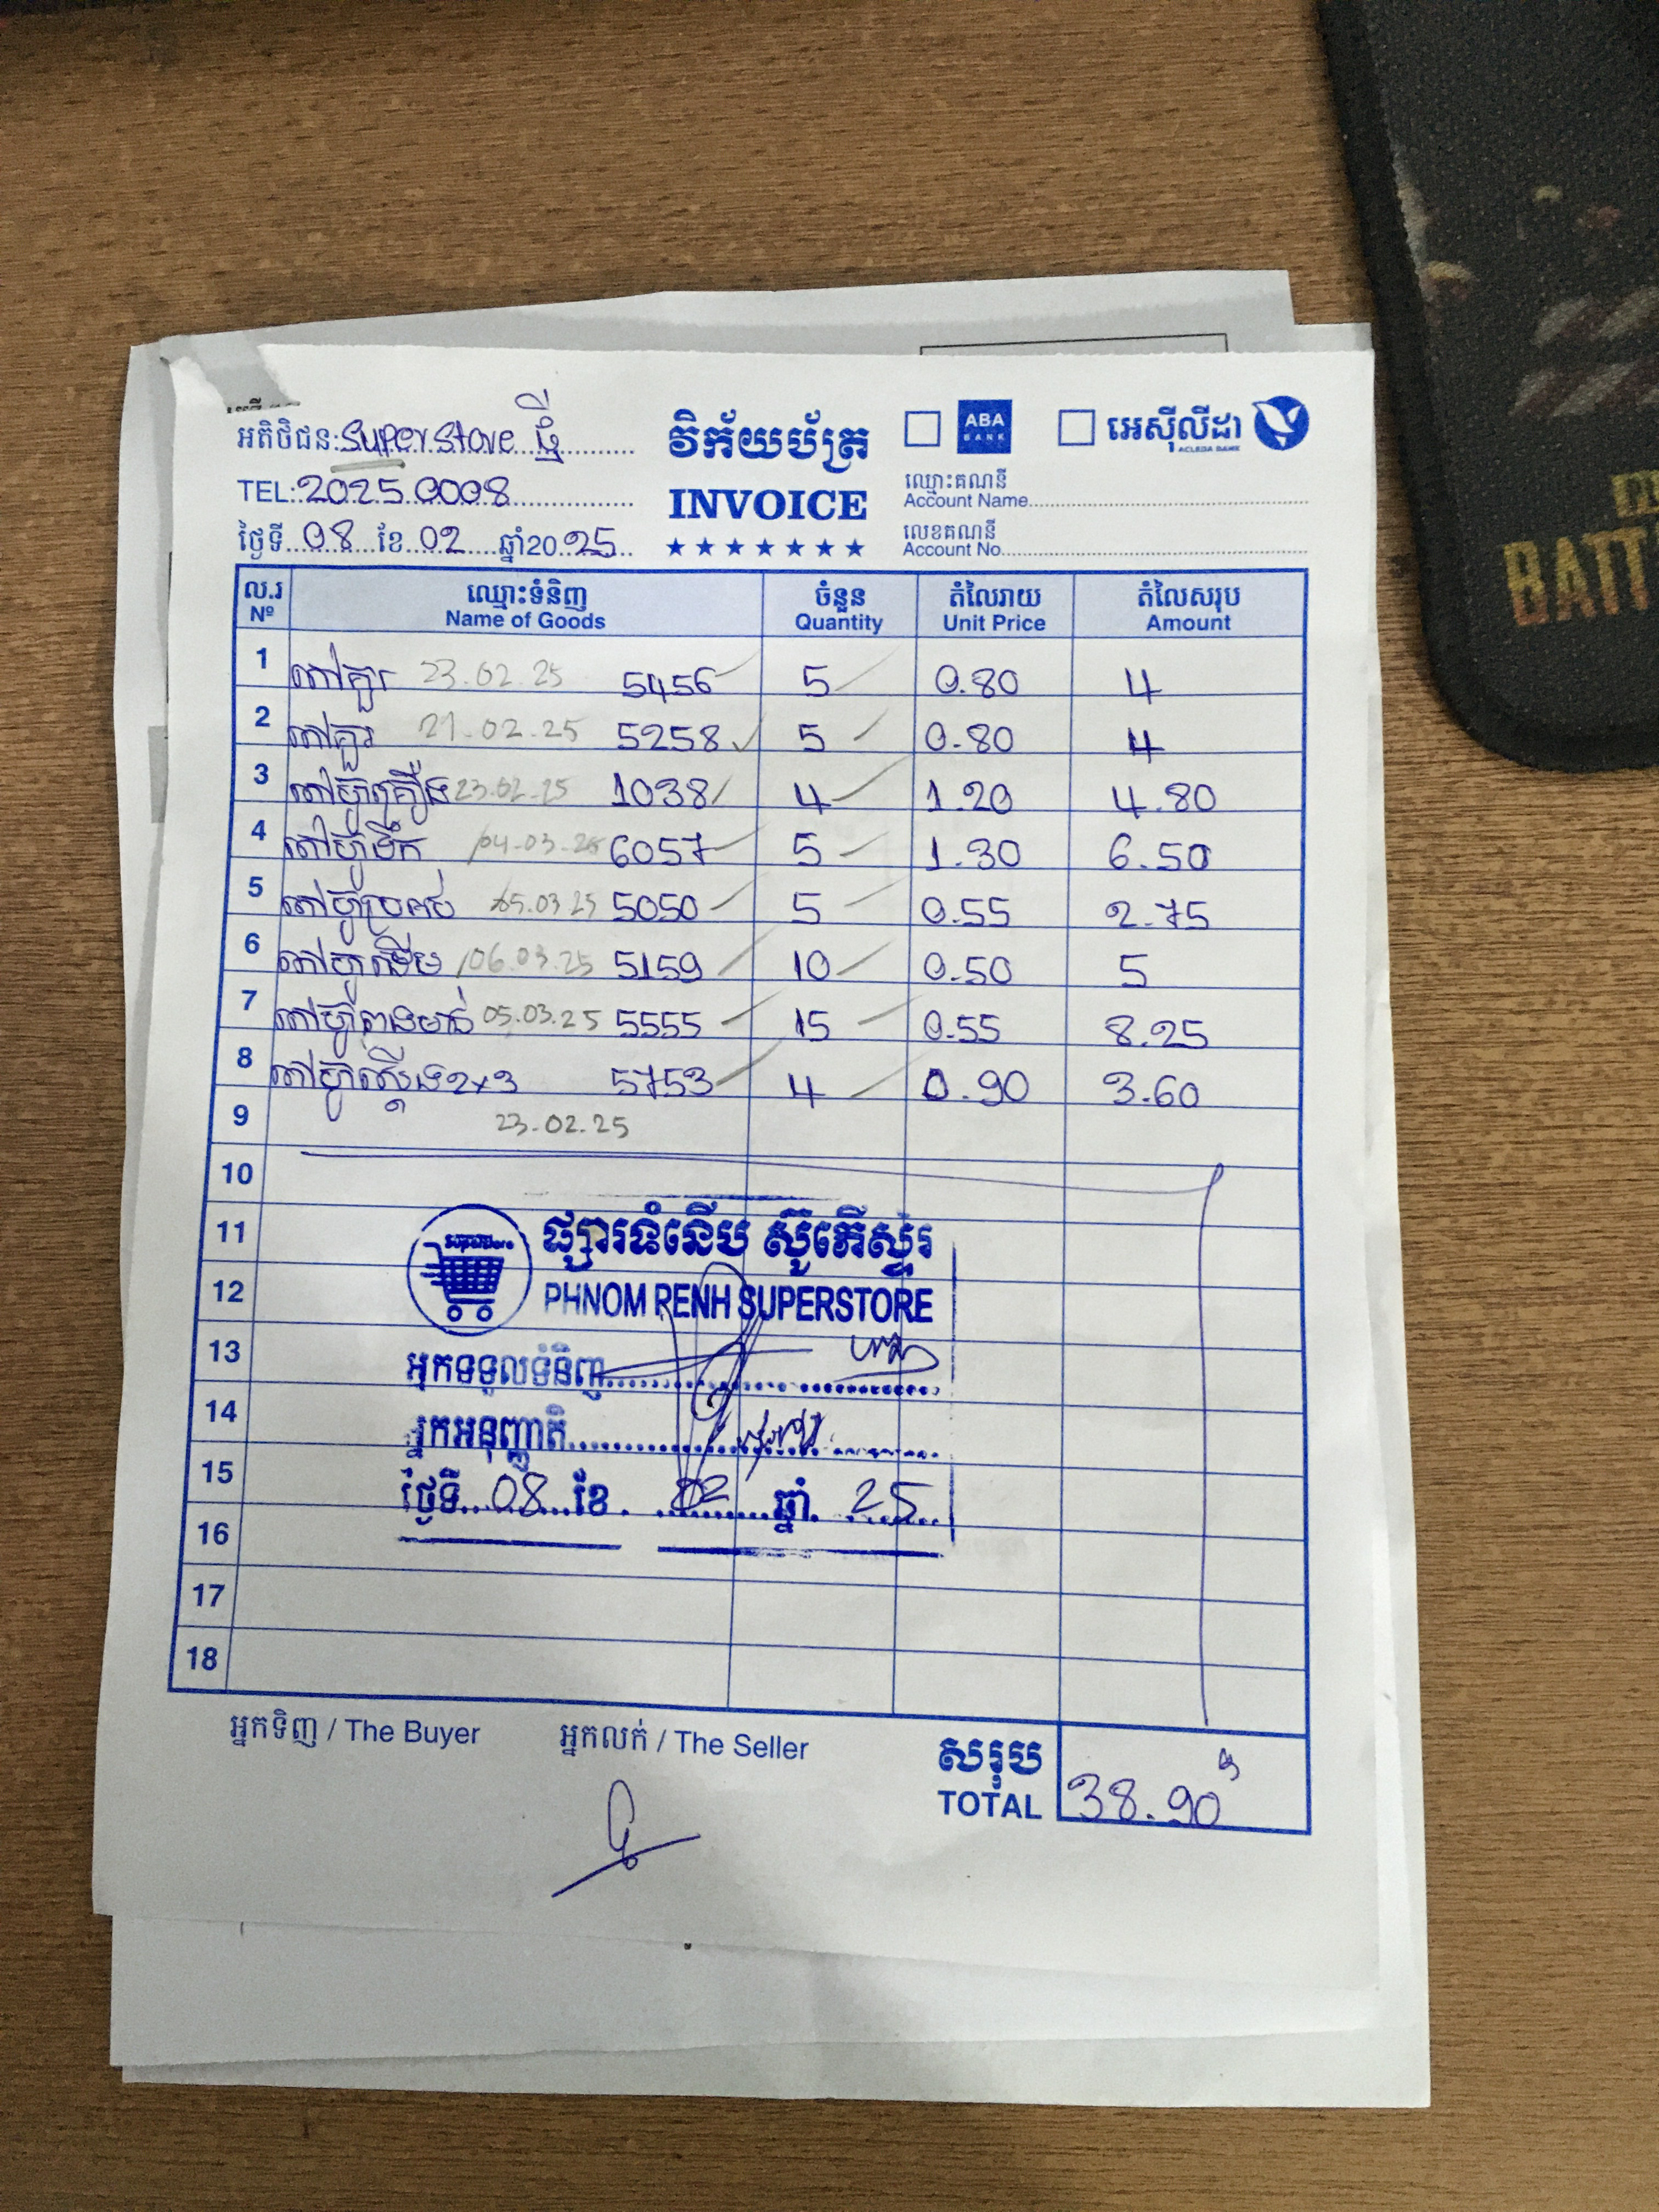 អតិថិជន: Superstore ថ្មី
TEL: 2025.0008
ថ្ងៃទី 08 ខែ 02 ឆ្នាំ20 25
វិក័យប័ត្រ
INVOICE
ABA BANK
អេស៊ីលីដា
ACLEDA BANK
ឈ្មោះគណនី
Account Name
លេខគណនី
Account No
ល.រ ឈ្មោះទំនិញ ចំនួន តំលៃរាយ តំលៃសរុប
Nº Name of Goods Quantity Unit Price Amount
1 តៅគួរ 23.02.25 5456 5 0.80 4
2 តៅគួរ 21.02.25 5258 5 0.80 4
3 តៅហ្វូគ្រឿង 23.02.25 1038 4 1.20 4.80
4 តៅហ្វូទឹក 04.03.25 6057 5 1.30 6.50
5 05.03.25 5050 5 0.55 2.75
6 06.03.25 5159 10 0.50 5
7 តៅហ្វូពងមាន់ 05.03.25 5555 15 0.55 8.25
8 តៅហ្វូស្តើង 2x3 5753 4 0.90 3.60
9 23.02.25
10
11
12
13
14
15
16
17
18
ផ្សារទំនើប ស៊ូភើស្ទរ
PHNOM PENH SUPERSTORE
អ្នកទទួលទំនិញ
អ្នកអនុញ្ញាតិ
ថ្ងៃទី 08 ខែ 02 ឆ្នាំ 25
អ្នកទិញ / The Buyer
អ្នកលក់ / The Seller
សរុប
TOTAL 38.90$
BATT